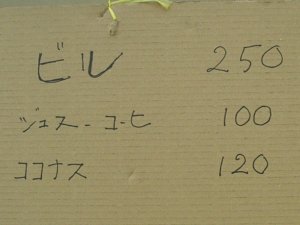 ビル 250
ジュス-コーヒ 100
ココナス 120